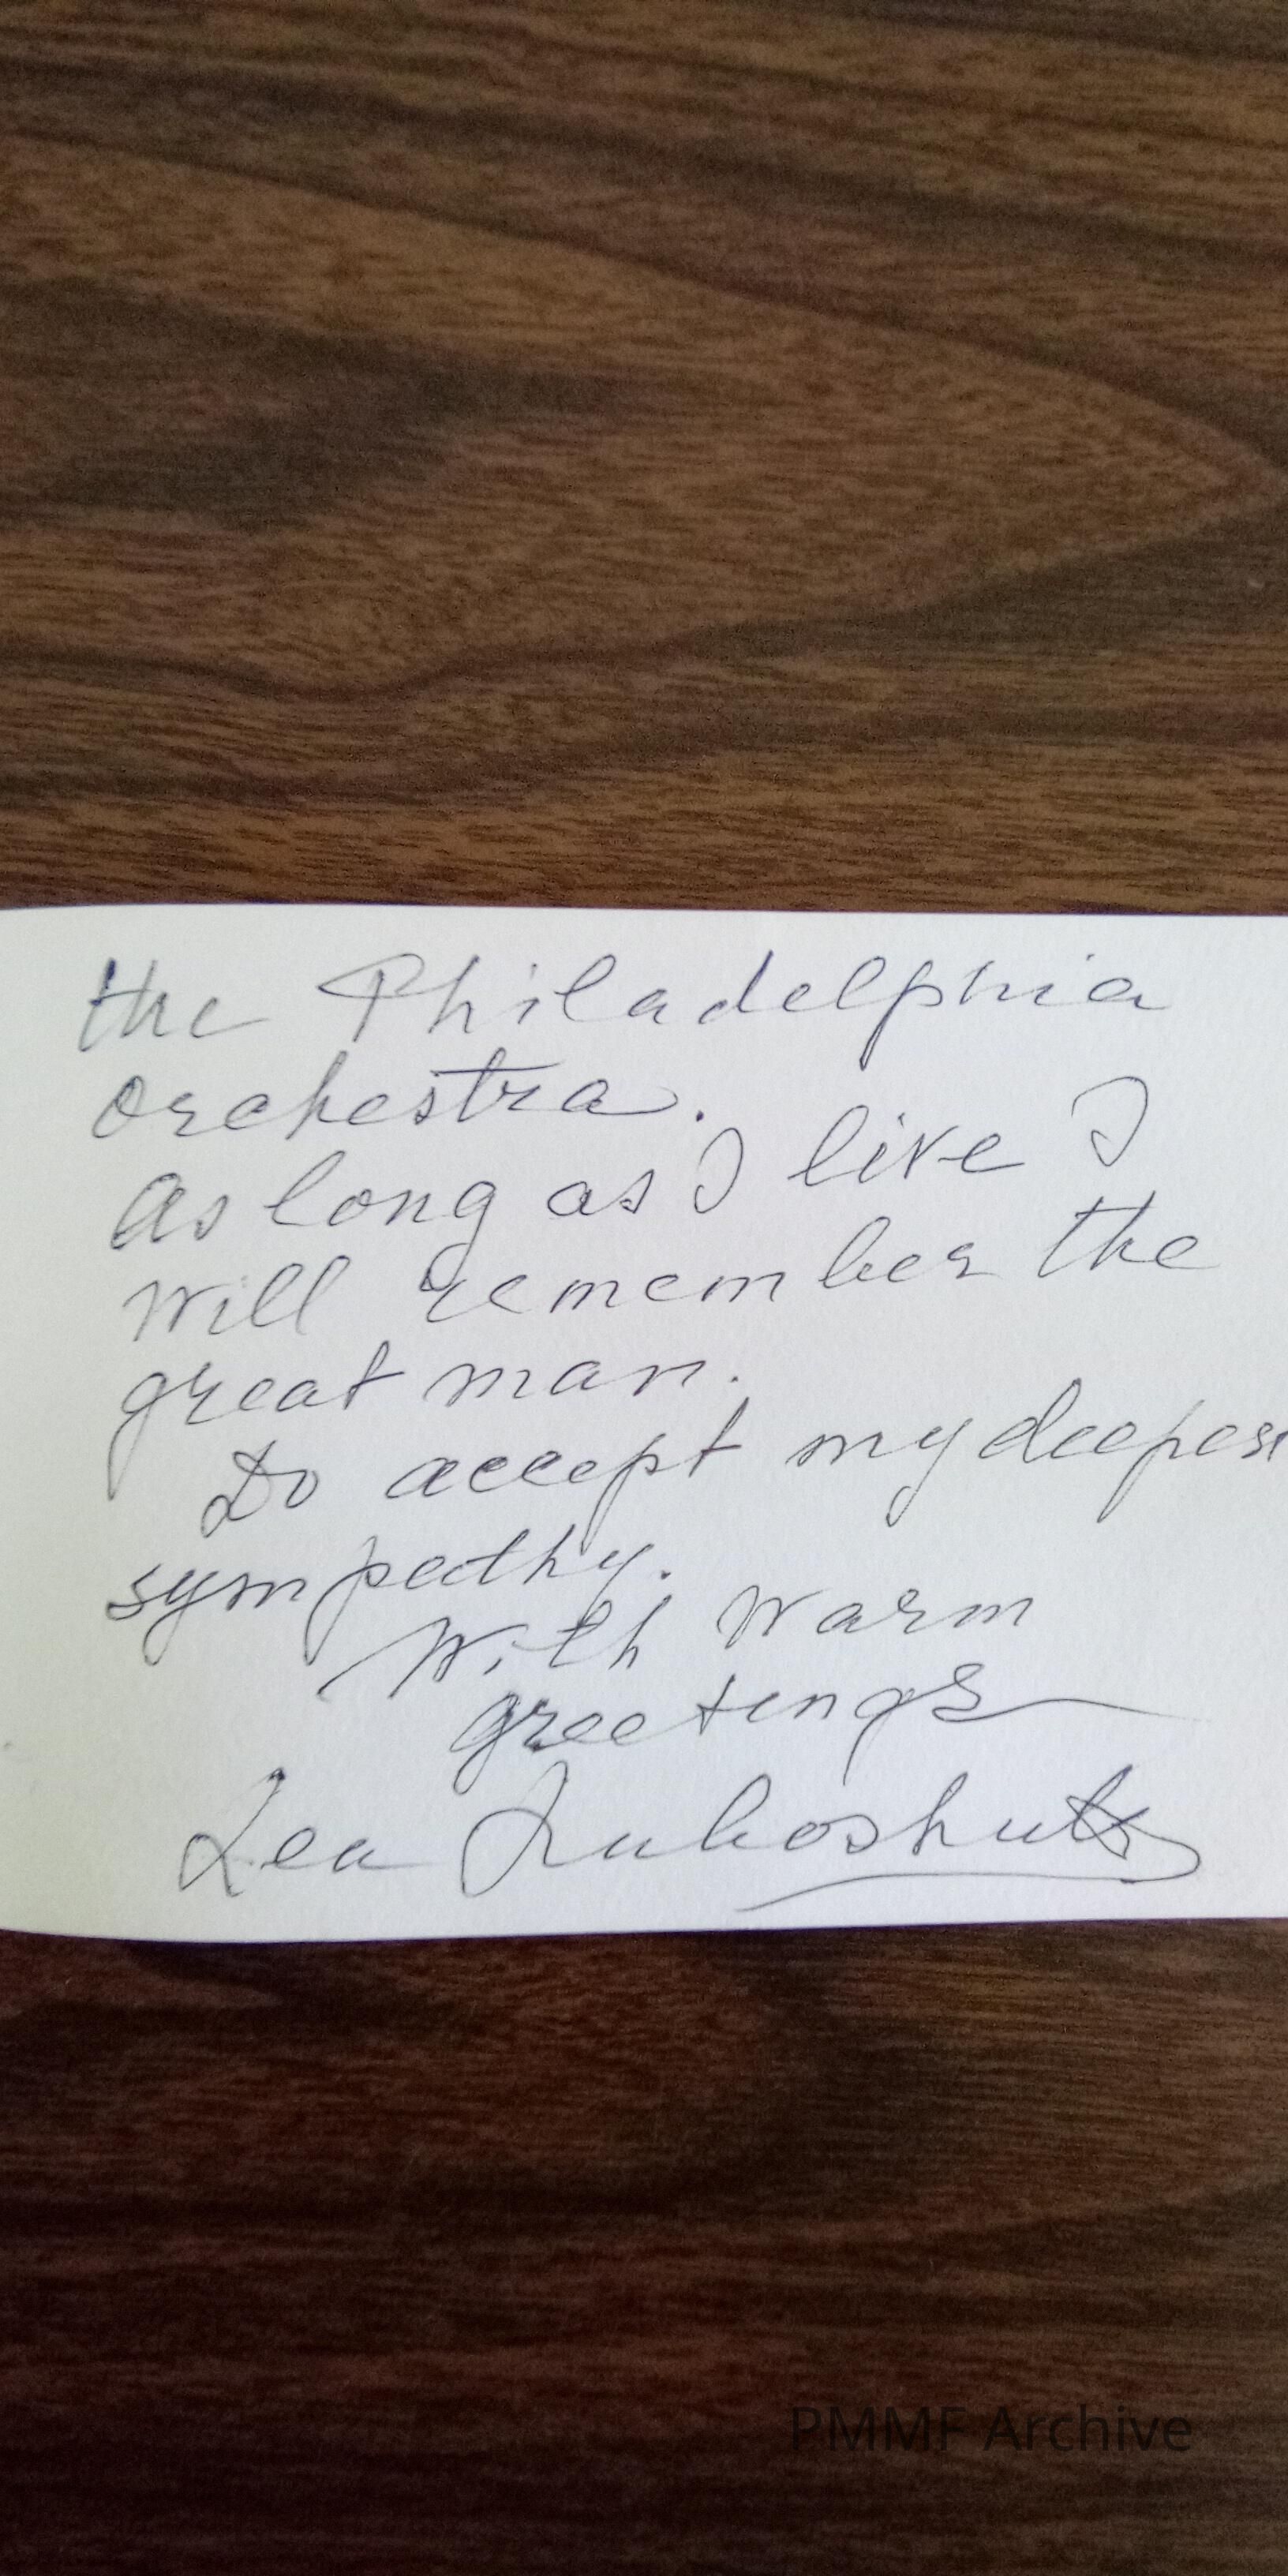 the Philadelphia
orchestra.
As long as I live I
will remember the
great man.
Do accept my deepest
sympathy.
With warm
greetings
Lea Luboshutz
PMMF Archive